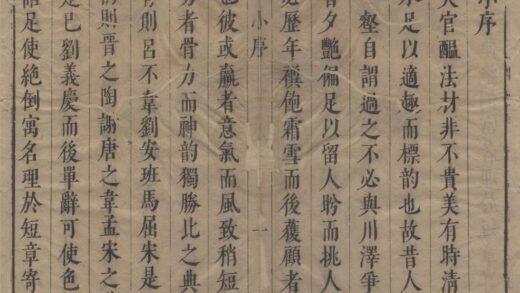 小序
官醖法材非不貴美有時清
足以適趣而標韵也故昔人
壑自謂過之不必與川澤爭
夕艷偏足以留人聆而挑人
必歷年禩飽霜雪而後獲顧者
小序 一
也彼或贏者意氣而風致稍短
者骨力而神韵獨勝比之典
則呂不韋劉安班馬屈宋是
則晉之陶謝唐之韋孟宋之
是已劉義慶而後單辭可使色
語足使絕倒寓名理於短章寄